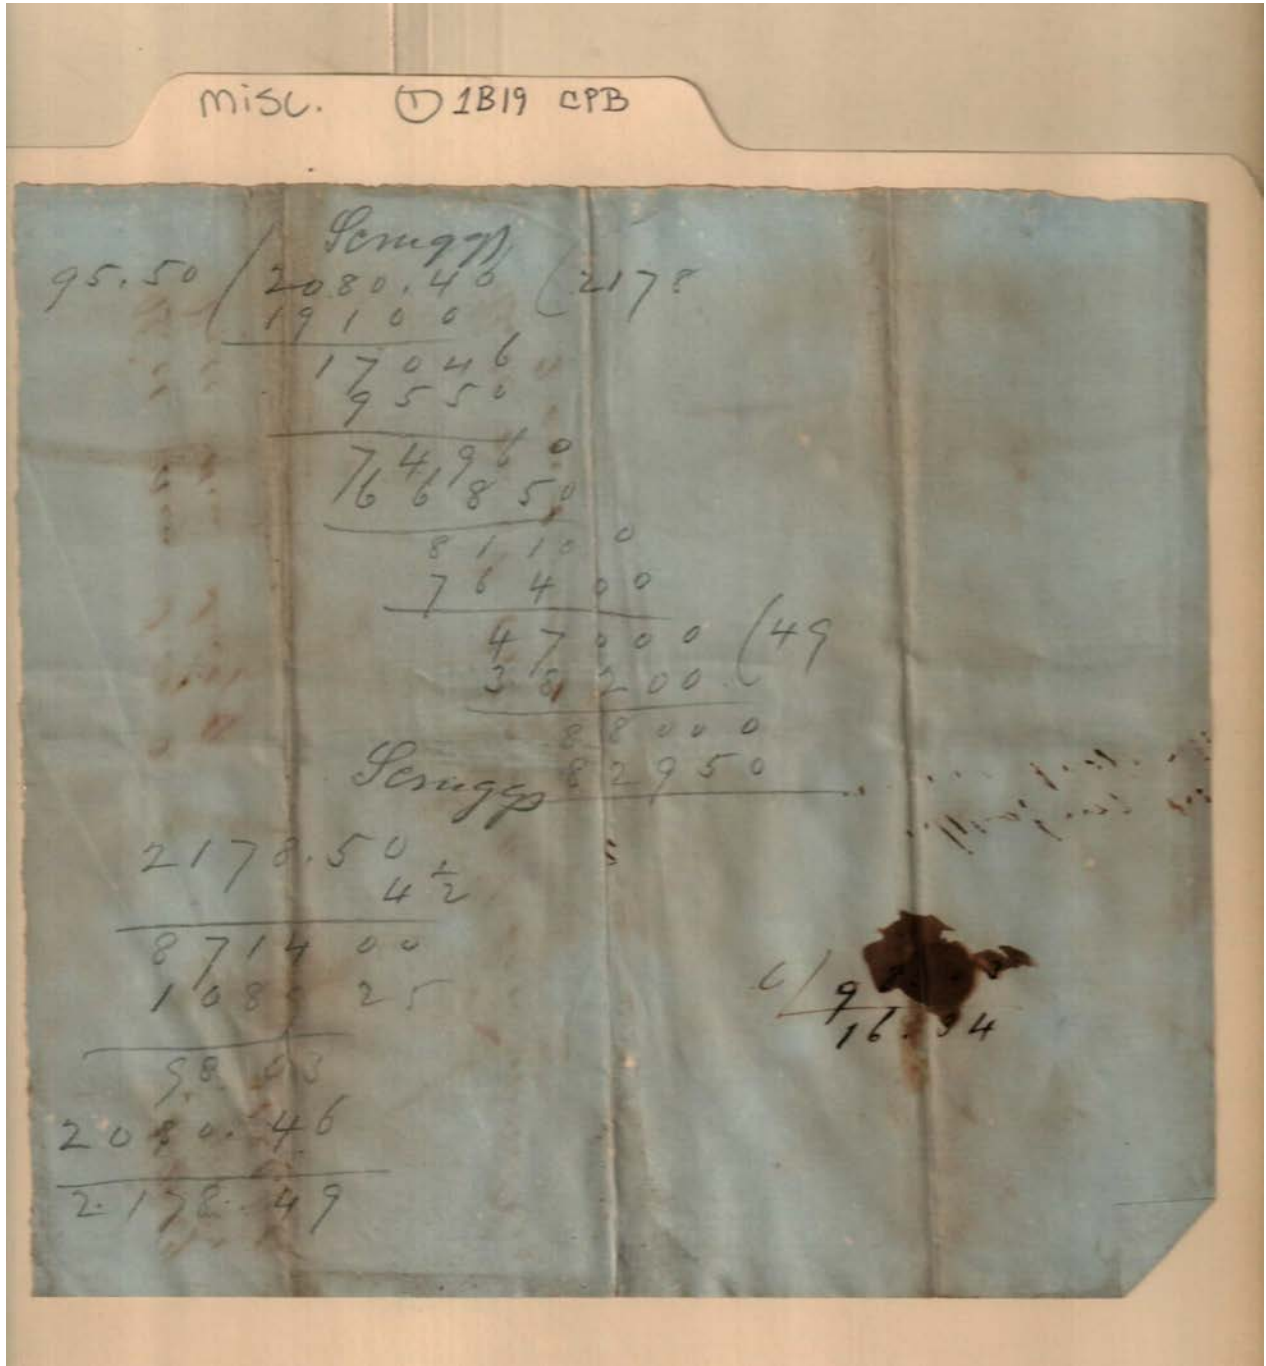 misc. ① 1B19 CPB
Scruggs
95.50 / 2080.46 ( 2178
19100
17046
9550
74960
66850
81100
76400
47000 ( 49
38200
88000
Scruggs 82950
2178.50
4 1/2
8714 00
1089 25
98 03
2080.46
2.178.49
6/ 9
16.34